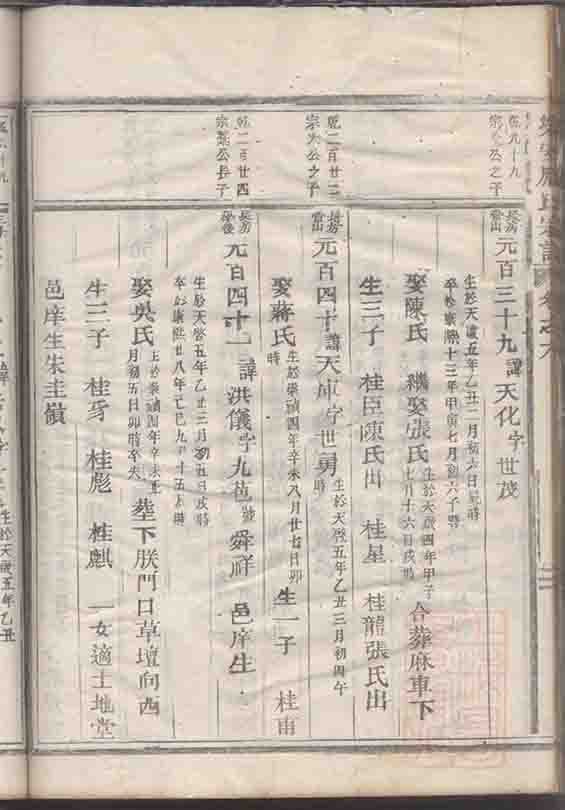 氏宗譜
乾九十九
宗 公之子
長房
元百三十九 諱 天化 字 世茂
生於天啟五年乙丑二月初六日 時
卒於康熙十三年甲寅七月初六子時
娶陳氏 繼娶張氏 生於天啟四年甲子七月十六日戌時 合葬麻車下
生三子 桂臣陳氏出 桂星 桂龍張氏出
乾二百廿三
宗 公之子
長房
元百四十 諱 天庫 字 世勇 生於天啓五年乙丑三月初四午時
娶蔣氏 生於崇禎四年辛未八月廿七日卯時 生一子 桂甫
乾二百廿四
宗 公長子
長房
元百四十一 諱 洪儀 字 九苞 號 舜祥 邑庠生
生於天啓五年乙丑三月初五日戌時
卒於康熙廿八年己巳九月十五 時
娶吳氏 生於崇禎四年辛未 月初五日卯時卒失 葬下朕門口草壇向西
生三子 桂芳 桂彪 桂麒 一女適土地堂
邑庠生朱圭嶺
生於天啟五年乙丑